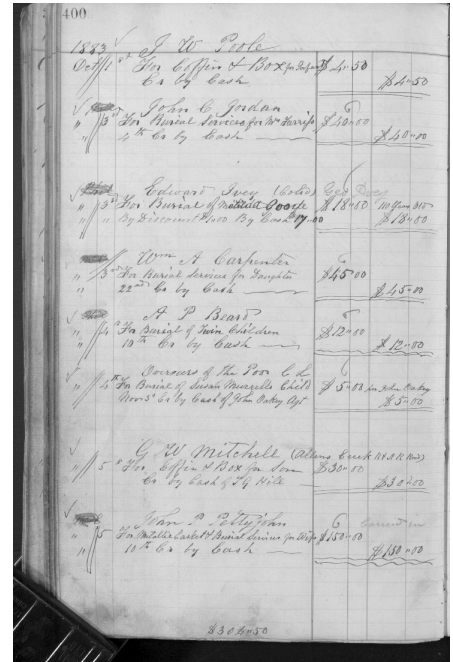 400
1883 J W Poole
Oct 1st For Coffin & Box for Infant $4.50
Cr by Cash $4.50
John C Jordan
" 3rd For Burial Services for Mr Farriss $40.00
4th Cr by Cash $40.00
Edward Ivey (Cold) Geo Ivey
" 3rd For Burial of Matilda Goode $18.00
" " By Discount $1.00 By Cash $17.00 $18.00
Wm A Carpenter
" 3rd For Burial Services for Daughter $45.00
22nd Cr by Cash $45.00
A P Beard
" 4th For Burial of Twin Children $12.00
10th Cr by Cash $12.00
Overseers of the Poor C L
" 4th For Burial of Susan Child $5.00 John Oakey
Nov 3rd Cr by Cash of John Oakey Agt $5.00
G W Mitchell (Allens Creek
" 5th For Coffin & Box for Son $30.00
Cr by Cash of Hill $30.00
John P Pettyjohn
" 5 For Metallic Casket & Burial Services for Wife $150.00
10th Cr by Cash $150.00
$304.50